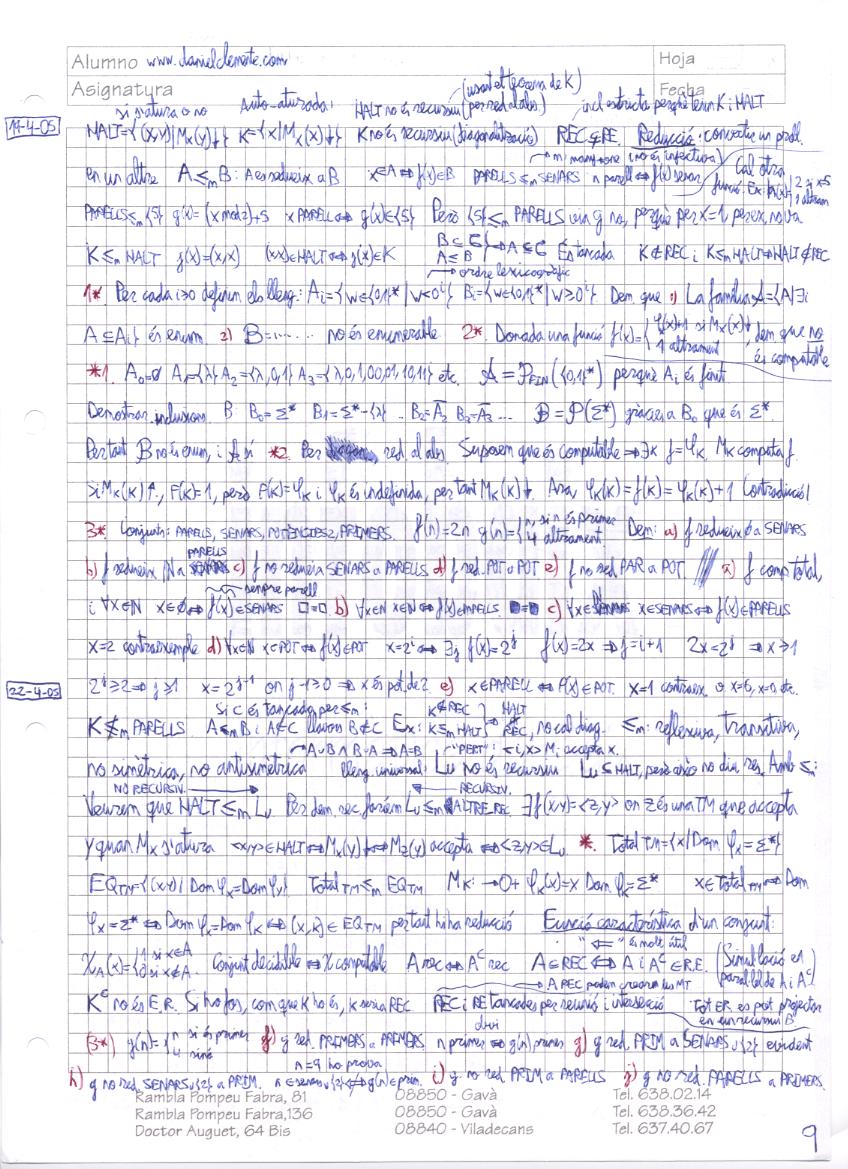 Alumno www.danielclemente.com Hoja
Asignatura Fecha
(usant el teorema de K)
si s'atura o no Auto-aturada: HALT no és recursiu (per red. al abs.) incl. estricta perquè tenim K i HALT
14-4-05 HALT={(x,y)|Mx(y)↓} K={x|Mx(x)↓} K no és recursiu (diagonalització) REC⊊RE. Reducció: convertir un probl.
m: many-one (no és injectiva)
en un altre A≤mB: A es redueix a B x∈A⇔f(x)∈B PARELLS≤m SENARS n parell⇔f(x) senar. Cal otra funció. Ex: h(x)={2 si x=5, 1 altram
PARELLS≤m{5} g(x)=(x mod 2)+5 x PARELL⇔g(x)∈{5} Però {5}≤m PARELLS via g no, perquè per x=1, per ex, no va
K≤m HALT f(x)=(x,x) (x,x)∈HALT⇔f(x)∈K B∈C A≤B }⇒A∈C És tancada K∉REC i K≤mHALT⇒HALT∉REC
ordre lexicogràfic
1*. Per cada i≥0 definim els lleng: Ai={w∈{0,1}*|w<0^i} Bi={w∈{0,1}*|w≥0^i} Dem. que 1) La família A={A|∃i
A⊆Ai} és enum. 2) B=...... no és enumerable 2*. Donada una funció f(x)={φx(x)+1 si Mx(x)↓, 1 altrament, dem que no és computable
*1. A0=∅ A1={λ} A2={λ,0,1} A3={λ,0,1,00,01,10,11} etc. A=PFIN({0,1}*) perquè Ai és finit.
Demostrar inclusions. B: B0=Σ* B1=Σ*-{λ} .. B2=A̅2 B3=A̅3 ... B=P(Σ*) gràcies a B0 que és Σ*.
Per tant B no és enum, i A sí *2. Per red. al abs. Suposem que és computable ⇒∃k f=φk. Mk computa f.
Si Mk(k)↑, f(k)=1, però f(k)=φk i φk és indefinida, per tant Mk(k)↓. Ara, φk(k)=f(k)=φk(k)+1 Contradicció!
3*. Conjunts: PARELLS, SENARS, POTÈNCIES2, PRIMERS. f(n)=2n g(n)={n, si n és primer, 4 altrament Dem: a) f redueix ∅ a SENARS
b) f redueix N a PARELLS c) f no redueix SENARS a PARELLS d) f red. POT a POT e) f no red PAR a POT a) f comp total,
sempre parell
i ∀x∈N x∈∅⇔f(x)∈SENARS □=□ b) ∀x∈N x∈N⇔f(x)∈PARELLS ■=■ c) ∀x∈N x∈SENARS⇔f(x)∈PARELLS
x=2 contraexemple d) ∀x∈N x∈POT⇔f(x)∈POT x=2^i⇔∃j f(x)=2^j f(x)=2x ⇒j=i+1 2x=2^j ⇒x≥1
2^j≥2⇒j≥1 x=2^(j-1) on j-1≥0⇒x és pot. de 2 e) x∈PARELL⇔f(x)∈POT. x=1 contraex. o x=6, x=0, etc.
Si C és tancada per ≤m:
22-4-05 K≰m PARELLS A≤mB i A∉C llavors B∉C Ex: K∉REC K≤mHALT } HALT∉REC, no cal diag. ≤m: reflexiva, transitiva,
"PERT": <i,x> Mi accepta x.
no simètrica, no antisimètrica lleng. universal: Lu no és recursiu Lu⊆HALT, però això no diu res. Amb ≤:
NO RECURSIU. RECURSIU.
Veurem que HALT≤mLu Per dem rec. faríem Lu≤m ALTRE REC ∃f(x,y)=<z,y> on z és una TM que accepta
y quan Mx s'atura <x,y>∈HALT⇔Mx(y)↓⇔Mz(y) accepta ⇔<z,y>∈Lu *. Total TM={x|Dom φx=Σ*}
EQTM={(x,y)|Dom φx=Dom φy} TotalTM≤m EQTM Mk: →O+ φk(x)=x Dom φk=Σ* x∈TotalTM⇔Dom
φx=Σ*⇔Dom φx=Dom φk⇔(x,k)∈EQTM per tant hi ha reducció Funció característica d'un conjunt:
"⇐" és molt útil
χA(x)={1 si x∈A, 0 si x∉A. Conjunt decidible⇔χ computable A rec⇔A^C rec A∈REC⇔A i A^C∈R.E. (Simulació en paral·lel de A i A^C)
A REC podem crear les MT
K^C no és E.R. Si ho fos, com que K ho és, K seria REC REC i RE tancades per reunió i intersecció Tot ER. es pot projectar en un recursiu B
(3*) g(n)={n si és primer, 4 sinó f) g red. PRIMERS a PRIMERS n primer⇔g(n) primer g) g red. PRIM a SENARS∪{2} evident
n=9 ho prova
h) g no red. SENARS∪{2} a PRIM. n∈senars∪{2}⇔g(n)∈prim. i) g no red PRIM a PARELLS j) g no red. PARELLS a PRIMERS.
Rambla Pompeu Fabra, 81 08850 - Gavà Tel. 638.02.14
Rambla Pompeu Fabra,136 08850 - Gavà Tel. 638.36.42
Doctor Auguet, 64 Bis 08840 - Viladecans Tel. 637.40.67
9